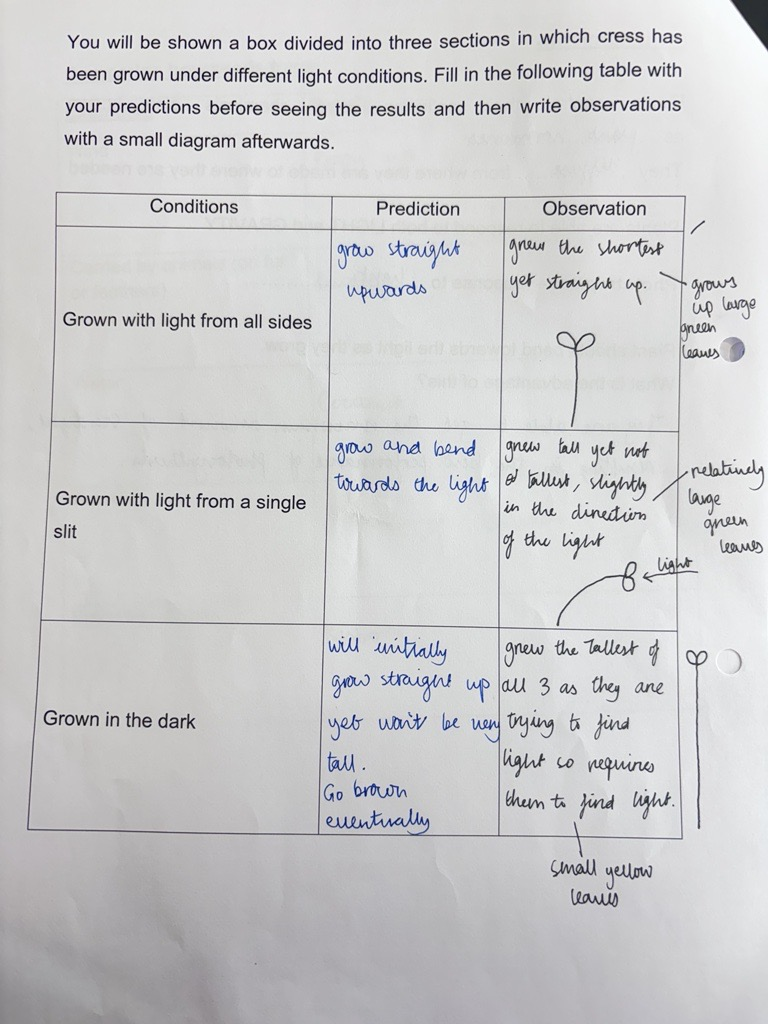 You will be shown a box divided into three sections in which cress has
been grown under different light conditions. Fill in the following table with
your predictions before seeing the results and then write observations
with a small diagram afterwards.
Conditions
Prediction
Observation
Grown with light from all sides
grow straight
upwards
grew the shortest
yet straight up.
grows
up large
green
leaves
Grown with light from a single
slit
grow and bend
towards the light
grew tall yet not
tallest, slightly
in the direction
of the light
light
relatively
large
green
leaves
Grown in the dark
will initially
grow straight up
yet won't be very
tall.
Go brown
eventually
grew the tallest of
all 3 as they are
trying to find
light so requires
them to find light.
small yellow
leaves